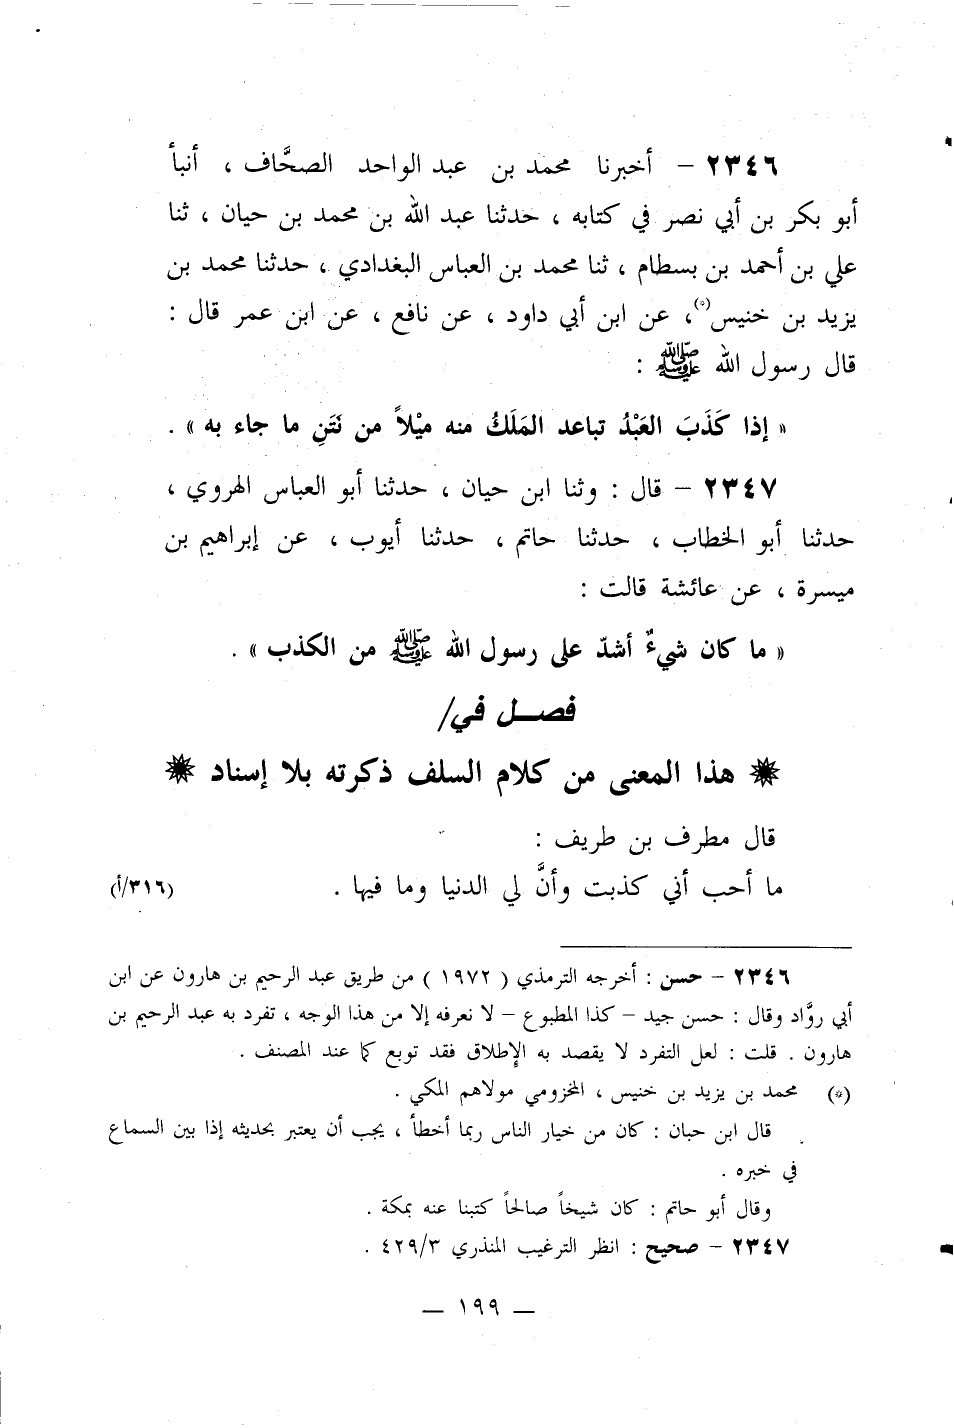 ٢٣٤٦ – أخبرنا محمد بن عبد الواحد الصحَّاف ، أنبأ
أبو بكر بن أبي نصر في كتابه ، حدثنا عبد الله بن محمد بن حيان ، ثنا
علي بن أحمد بن بسطام ، ثنا محمد بن العباس البغدادي ، حدثنا محمد بن
يزيد بن خنيس(*)، عن ابن أبي داود ، عن نافع ، عن ابن عمر قال :
قال رسول الله ﷺ :
« إذا كَذَبَ العَبْدُ تباعد المَلَكُ منه ميْلاً من نَتَنِ ما جاء به » .
٢٣٤٧ – قال : وثنا ابن حيان ، حدثنا أبو العباس الهروي ،
حدثنا أبو الخطاب ، حدثنا حاتم ، حدثنا أيوب ، عن إبراهيم بن
ميسرة ، عن عائشة قالت :
« ما كان شيءٌ أشدّ على رسول الله ﷺ من الكذب » .
فصــل في/
هذا المعنى من كلام السلف ذكرته بلا إسناد
قال مطرف بن طريف :
ما أحب أني كذبت وأنَّ لي الدنيا وما فيها . (٣١٦/أ)
٢٣٤٦ – حسن : أخرجه الترمذي ( ١٩٧٢ ) من طريق عبد الرحيم بن هارون عن ابن
أبي روَّاد وقال : حسن جيد – كذا المطبوع – لا نعرفه إلا من هذا الوجه ، تفرد به عبد الرحيم بن
هارون . قلت : لعل التفرد لا يقصد به الإطلاق فقد توبع كما عند المصنف .
(*) محمد بن يزيد بن خنيس ، المخزومي مولاهم المكي .
قال ابن حبان : كان من خيار الناس ربما أخطأ ، يجب أن يعتبر بحديثه إذا بين السماع
في خبره .
وقال أبو حاتم : كان شيخاً صالحاً كتبنا عنه بمكة .
٢٣٤٧ – صحيح : انظر الترغيب المنذري ٤٢٩/٣ .
— ١٩٩ —